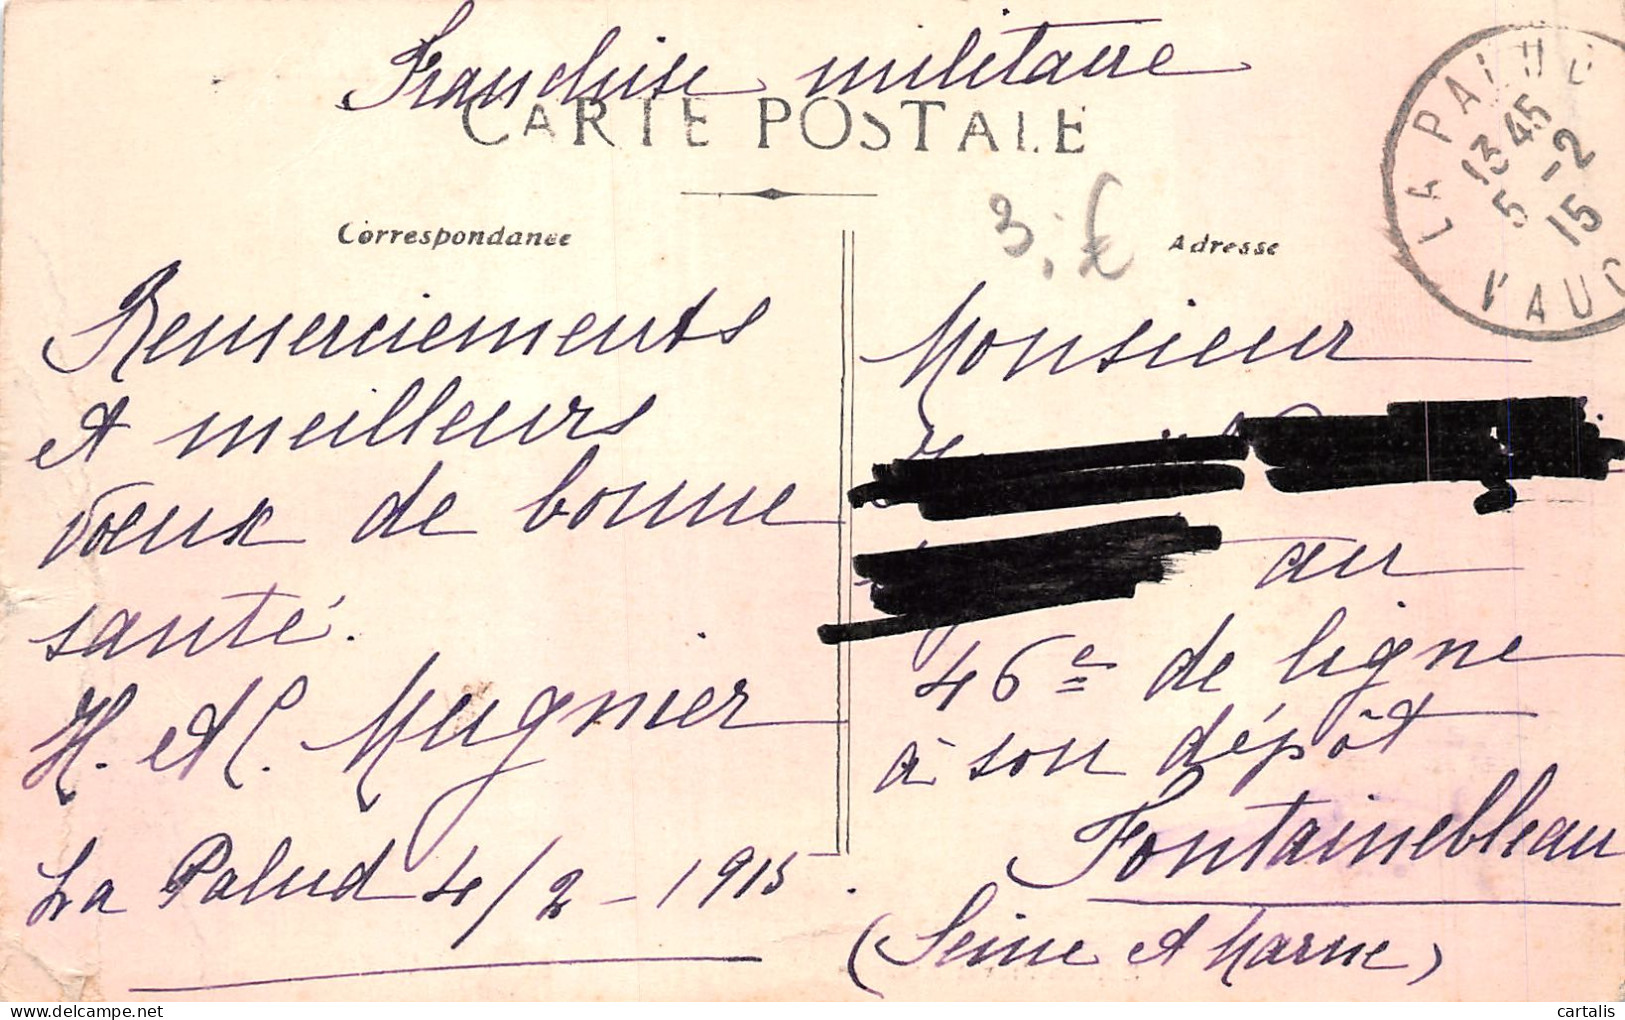 Franchise militaire
CARTE POSTALE
LA PALUD
13 45
5 -2
15
VAUC
3.€
Correspondance
Remerciements
et meilleurs
vœux de bonne
santé.
H. et C. Mugnier
La Palud 4/2-1915.
Adresse
Monsieur
au
46e de ligne
à son dépôt
Fontainebleau
(Seine et Marne)
delcampe.net
cartalis